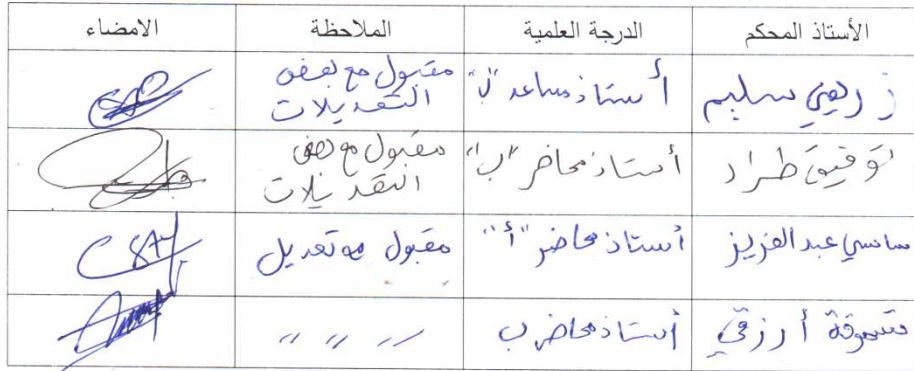 الأستاذ المحكم الدرجة العلمية الملاحظة الامضاء
زريعي سليم أستاذ مساعد "ب" مقبول مع بعض
التعديلات
توفيق طراد أستاذ محاضر "ب" مقبول مع بعض
التعديلات
ساسي عبد العزيز أستاذ محاضر "أ" مقبول مع تعديل
أرزقي أستاذ محاضر ب " " "